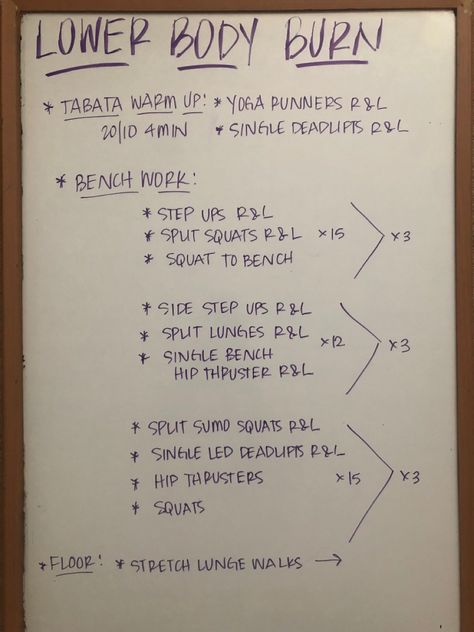 LOWER BODY BURN
* TABATA WARM UP: * YOGA RUNNERS R&L
20/10 4MIN * SINGLE DEADLIFTS R&L
* BENCH WORK:
* STEP UPS R&L
* SPLIT SQUATS R&L x15 x3
* SQUAT TO BENCH
* SIDE STEP UPS R&L
* SPLIT LUNGES R&L x12 x3
* SINGLE BENCH
HIP THRUSTER R&L
* SPLIT SUMO SQUATS R&L
* SINGLE LED DEADLIFTS R&L
* HIP THRUSTERS x15 x3
* SQUATS
* FLOOR: * STRETCH LUNGE WALKS →